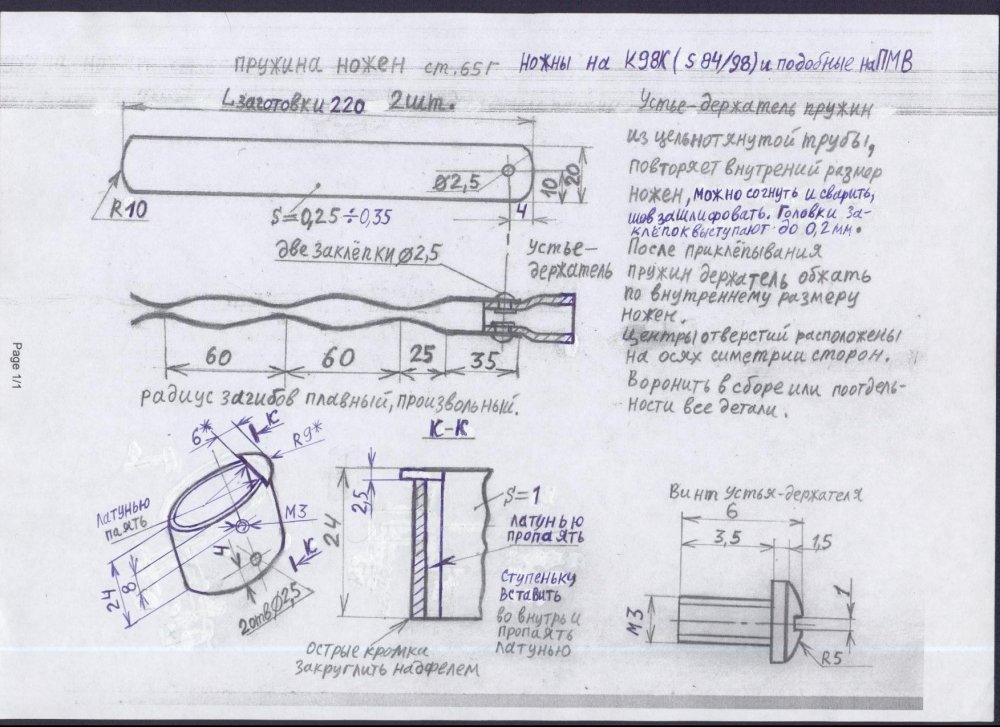 пружина ножен ст.65г ножны на К98К (S 84/98) и подобные на ПМВ
Lзаготовки 220 2шт.
Ø2,5
10
20
R10
S=0,25÷0,35
4
две заклёпки Ø2,5
Устье-
держатель
60
60
25
35
радиус загибов плавный, произвольный.
Устье-держатель пружин
из цельнотянутой трубы,
повторяет внутрений размер
ножен, можно согнуть и сварить,
шов зашлифовать. Головки за-
клёпок выступают до 0,2мм.
После приклёпывания
пружин держатель обжать
по внутреннему размеру
ножен.
Центры отверстий расположены
на осях симетрии сторон.
Воронить в сборе или поотдель-
ности все детали.
Page 1/1
6*
К
R9*
Латунью
паять
М3
4
К
24
8
2отв Ø2,5
К-К
2,5
24
S=1
латунью
пропаять
ступеньку
вставить
во внутрь и
пропаять
латунью
острые кромка
закруглить надфелем
Винт Устья-держателя
6
3,5
1,5
М3
1
R5